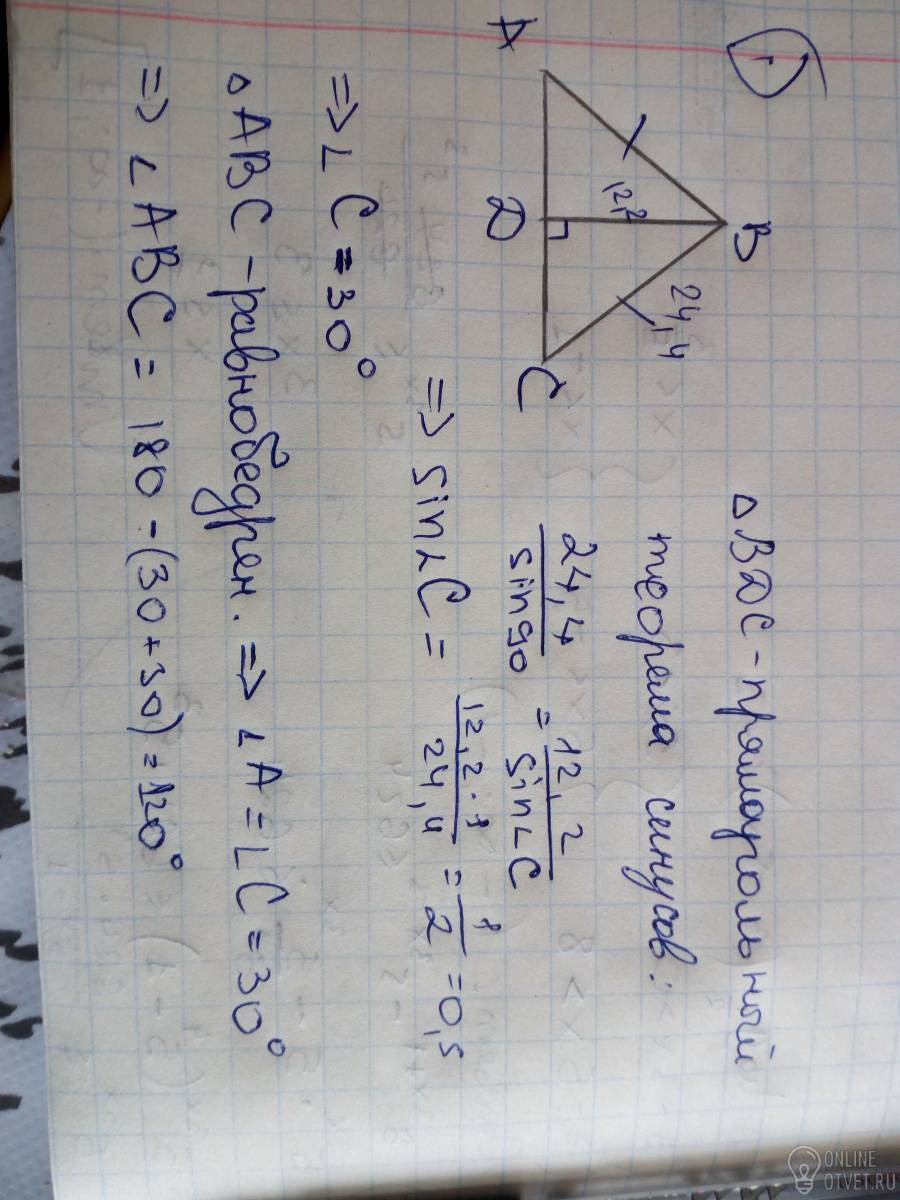 1
A
B
C
D
12,2
24,4
△BDC - прямоугольный
теорема синусов:
24,4/sin90 = 12,2/sin∠C
=> sin∠C = 12,2·1/24,4 = 1/2 = 0,5
=> ∠C = 30°
△ABC - равнобедрен. => ∠A = ∠C = 30°
=> ∠ABC = 180 - (30+30) = 120°
ONLINE
OTVET.RU